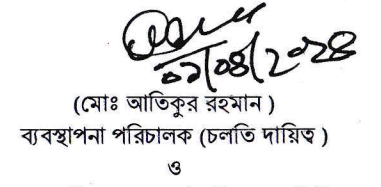 ০১/০৪/২০২৪
(মোঃ আতিকুর রহমান )
ব্যবস্থাপনা পরিচালক (চলতি দায়িত্ব )
ও